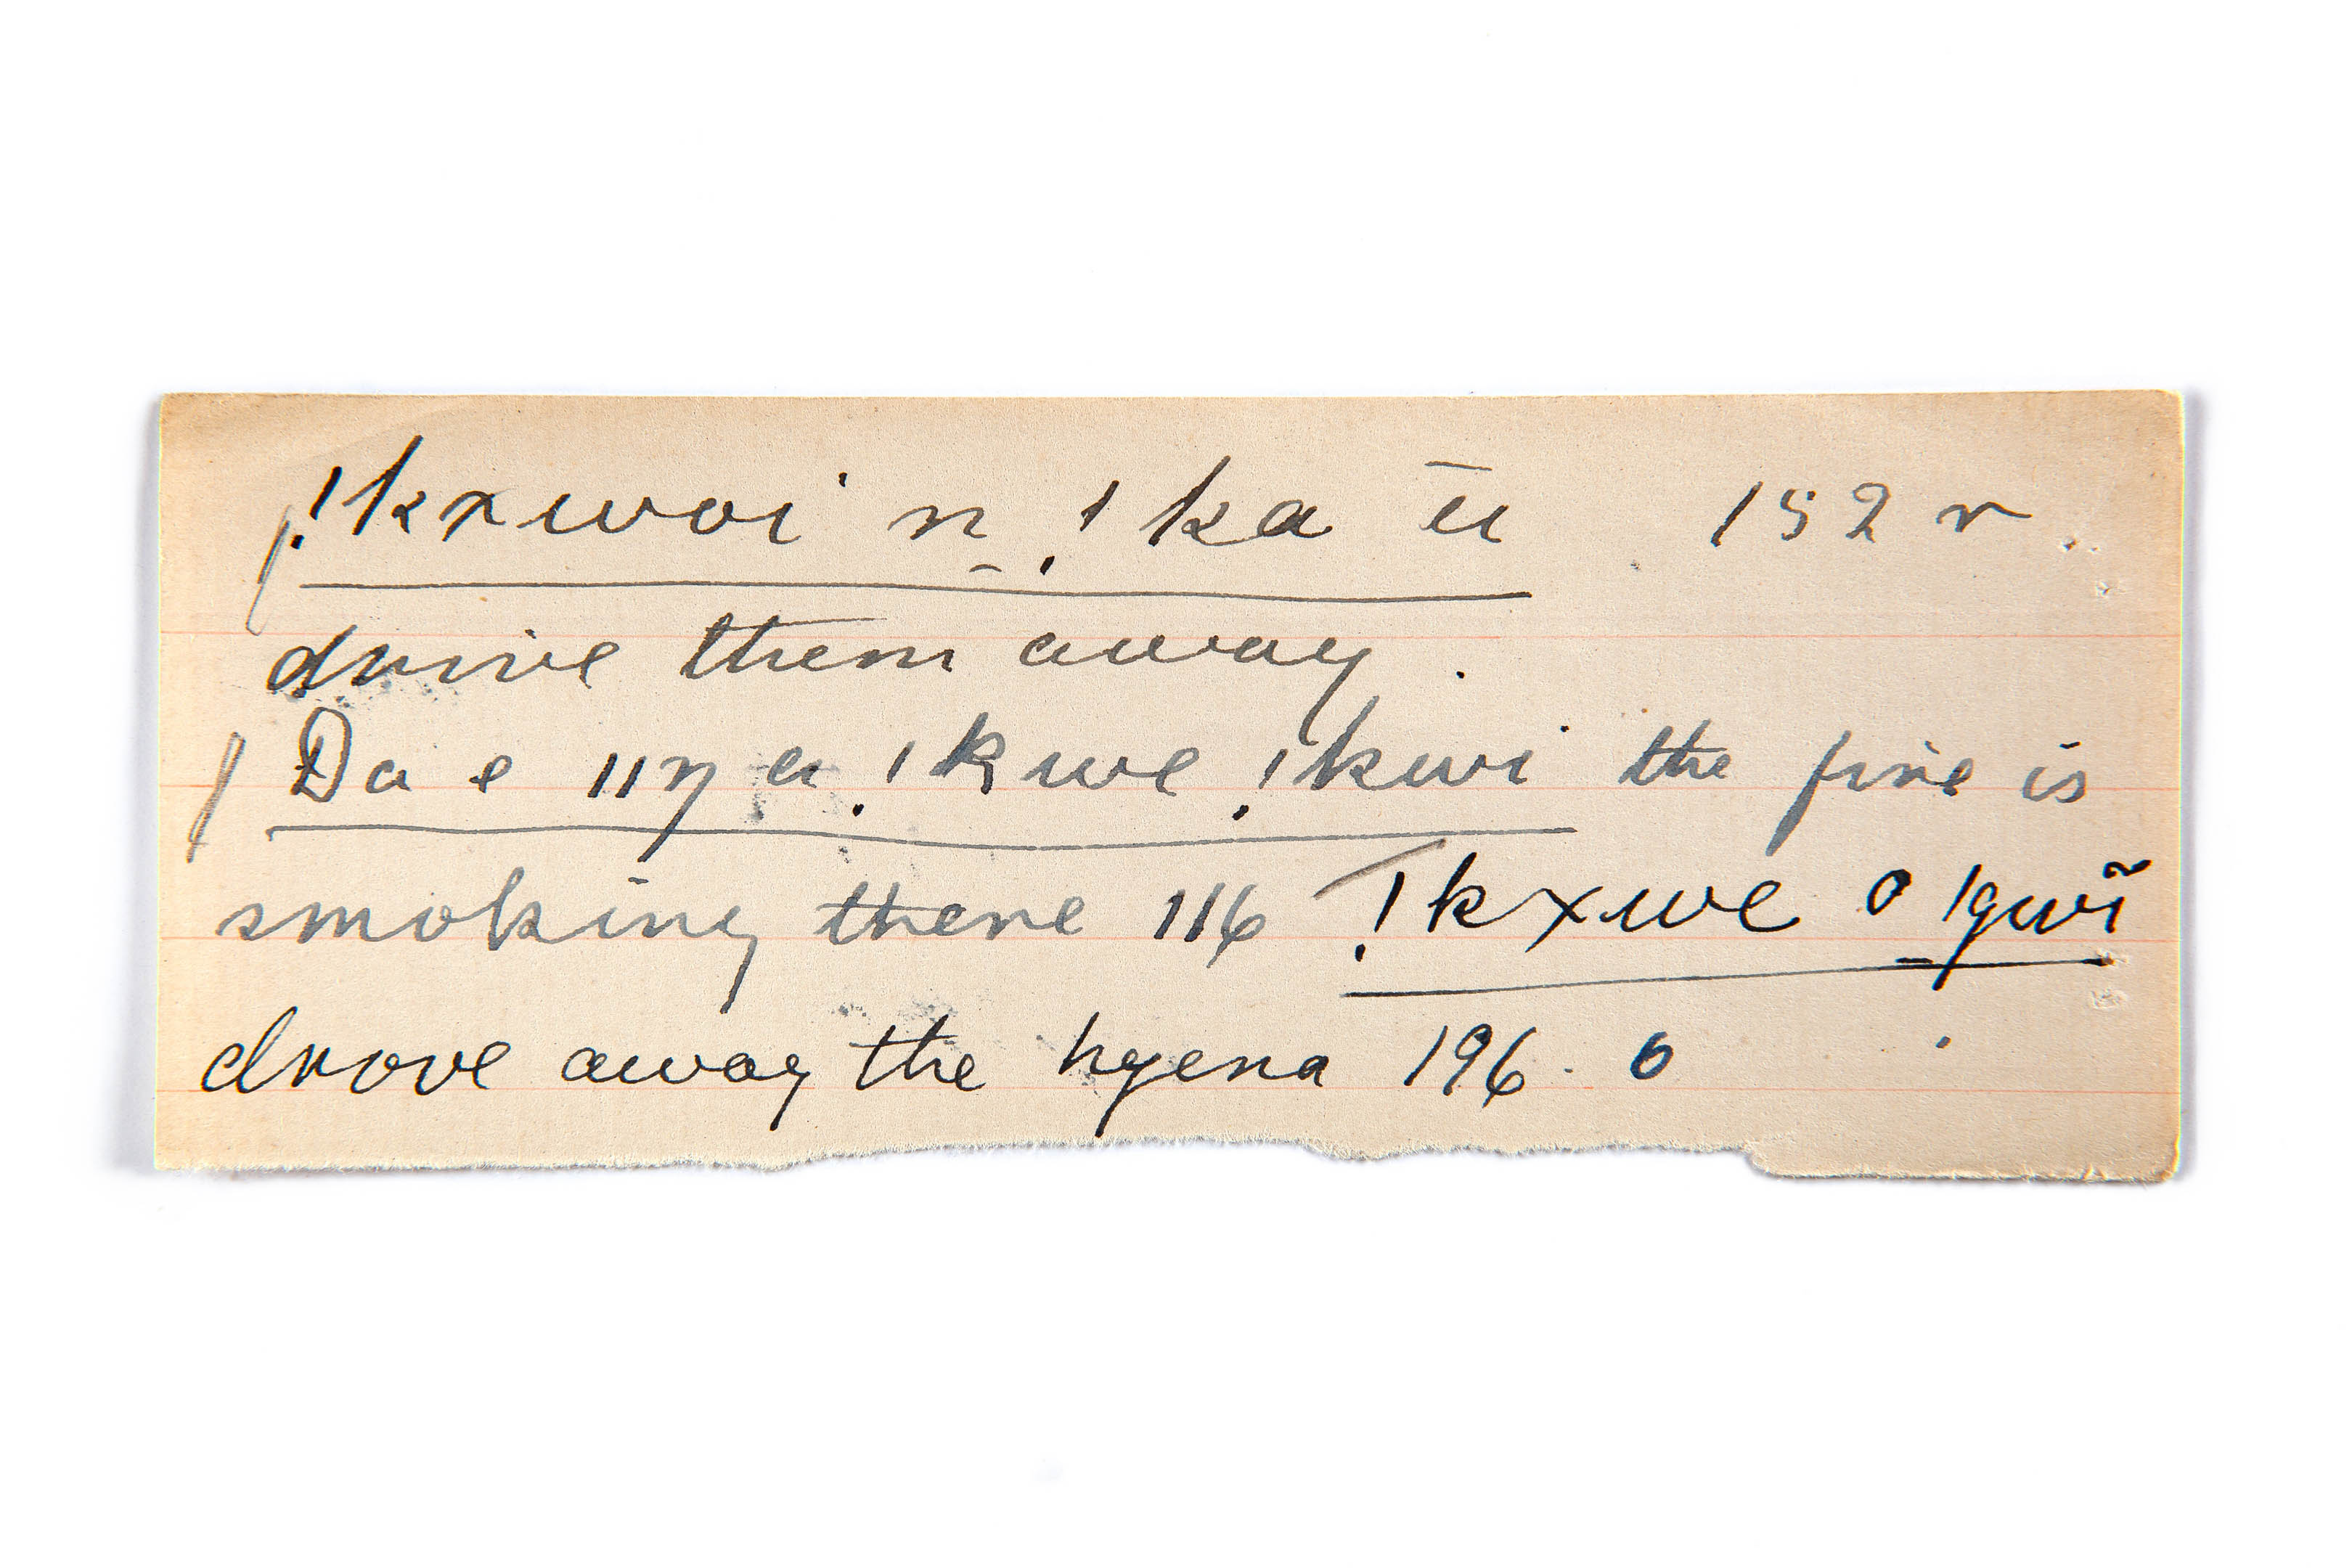 !kxwoi n̲ !ka ū 152 r
drive them away.
Da e ǁŋa !kwe !kwi the fire is
smoking there 116 !kxwe o |g̲wĩ
drove away the hyena 196. o